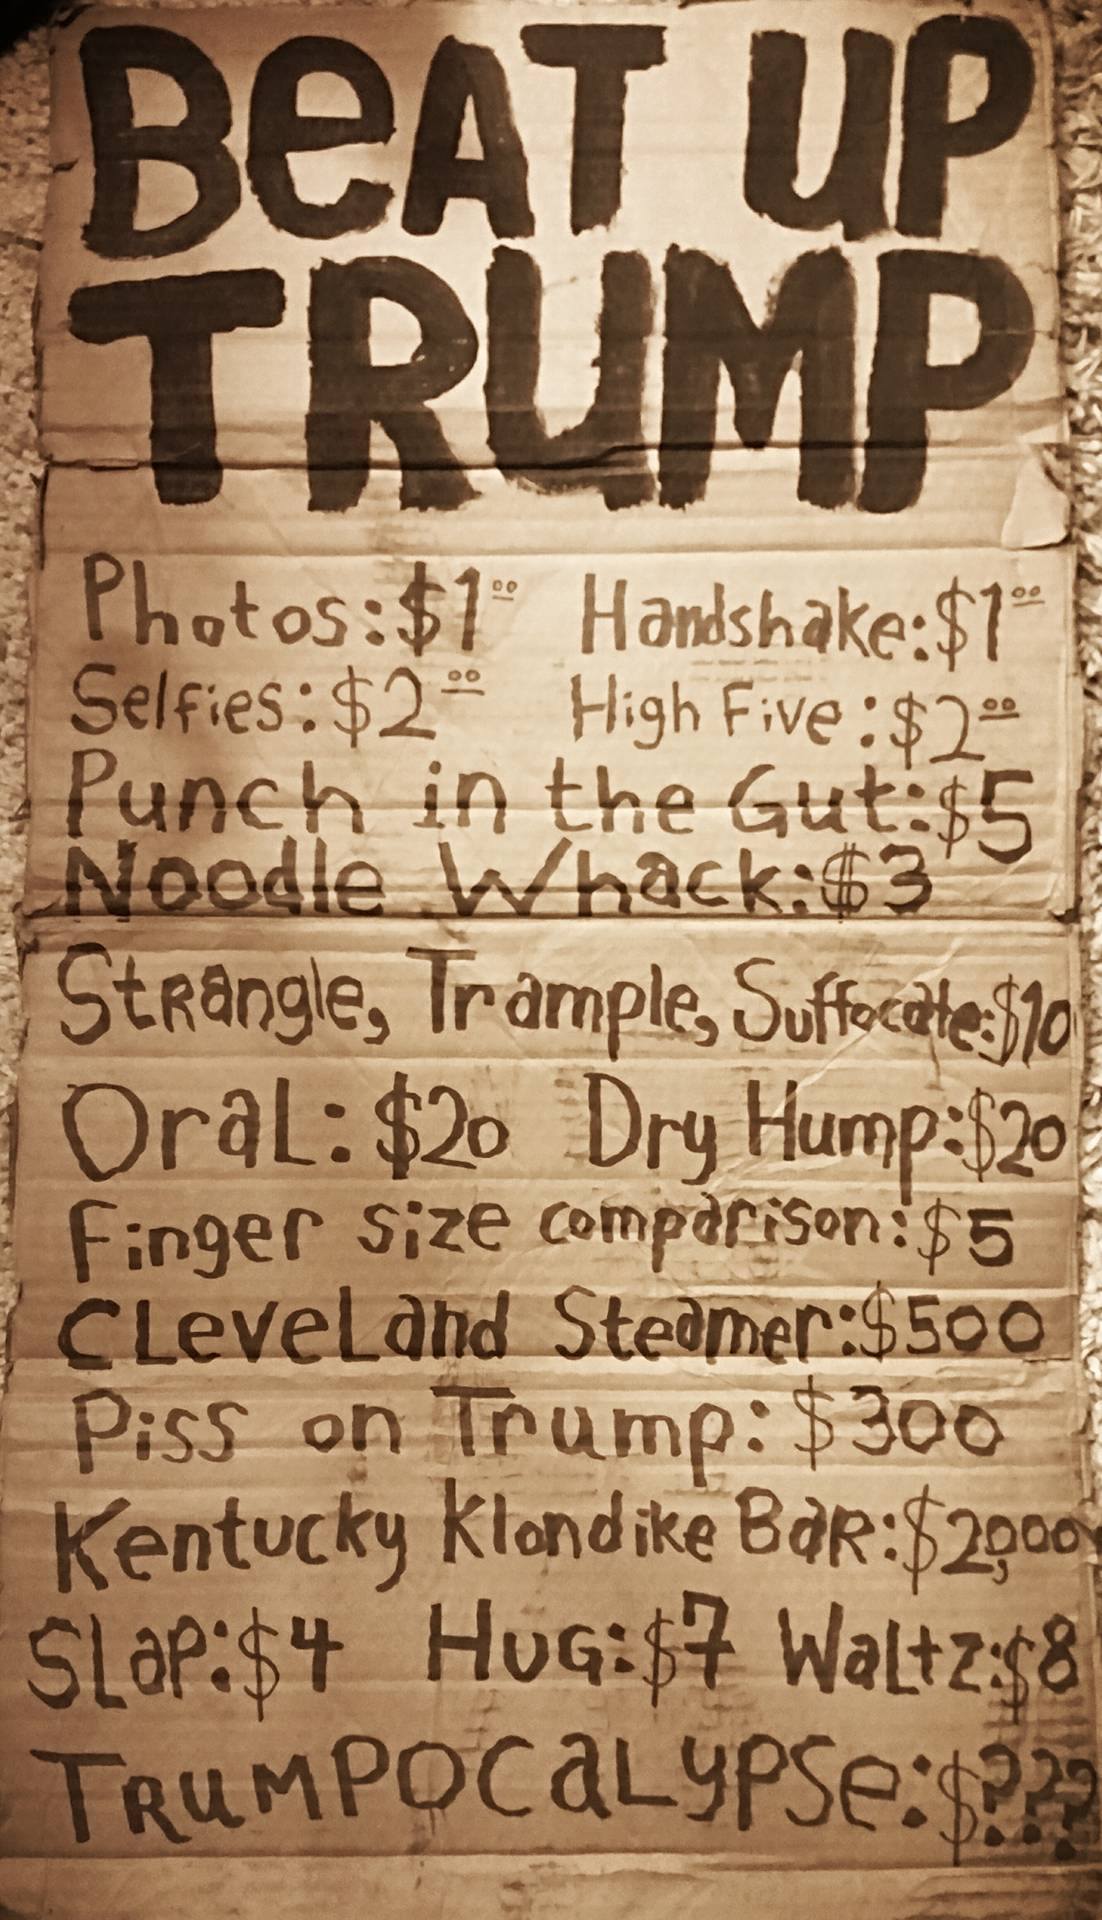 BeAT UP
TRUMP
Photos: $1.00 Handshake: $1.00
Selfies: $2.00 High Five: $2.00
Punch in the Gut: $5
Noodle Whack: $3
StRangle, Trample, Suffocate: $10
OraL: $20 Dry Hump: $20
Finger size comparison: $5
CLeveLand Steamer: $500
Piss on Trump: $300
Kentucky Klondike BaR: $2,000
SLaP: $4 HuG: $7 WaLtz: $8
TRuMPOCaLyPSe: $???